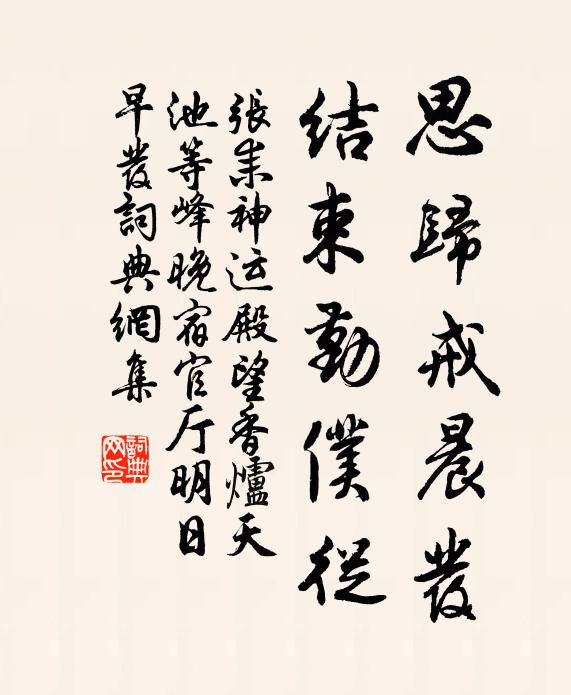 思歸戒晨發
結束勤僕從
張耒神运殿望香爐天
池等峰晚宿官厅明日
早發詞典網集
詞典网印